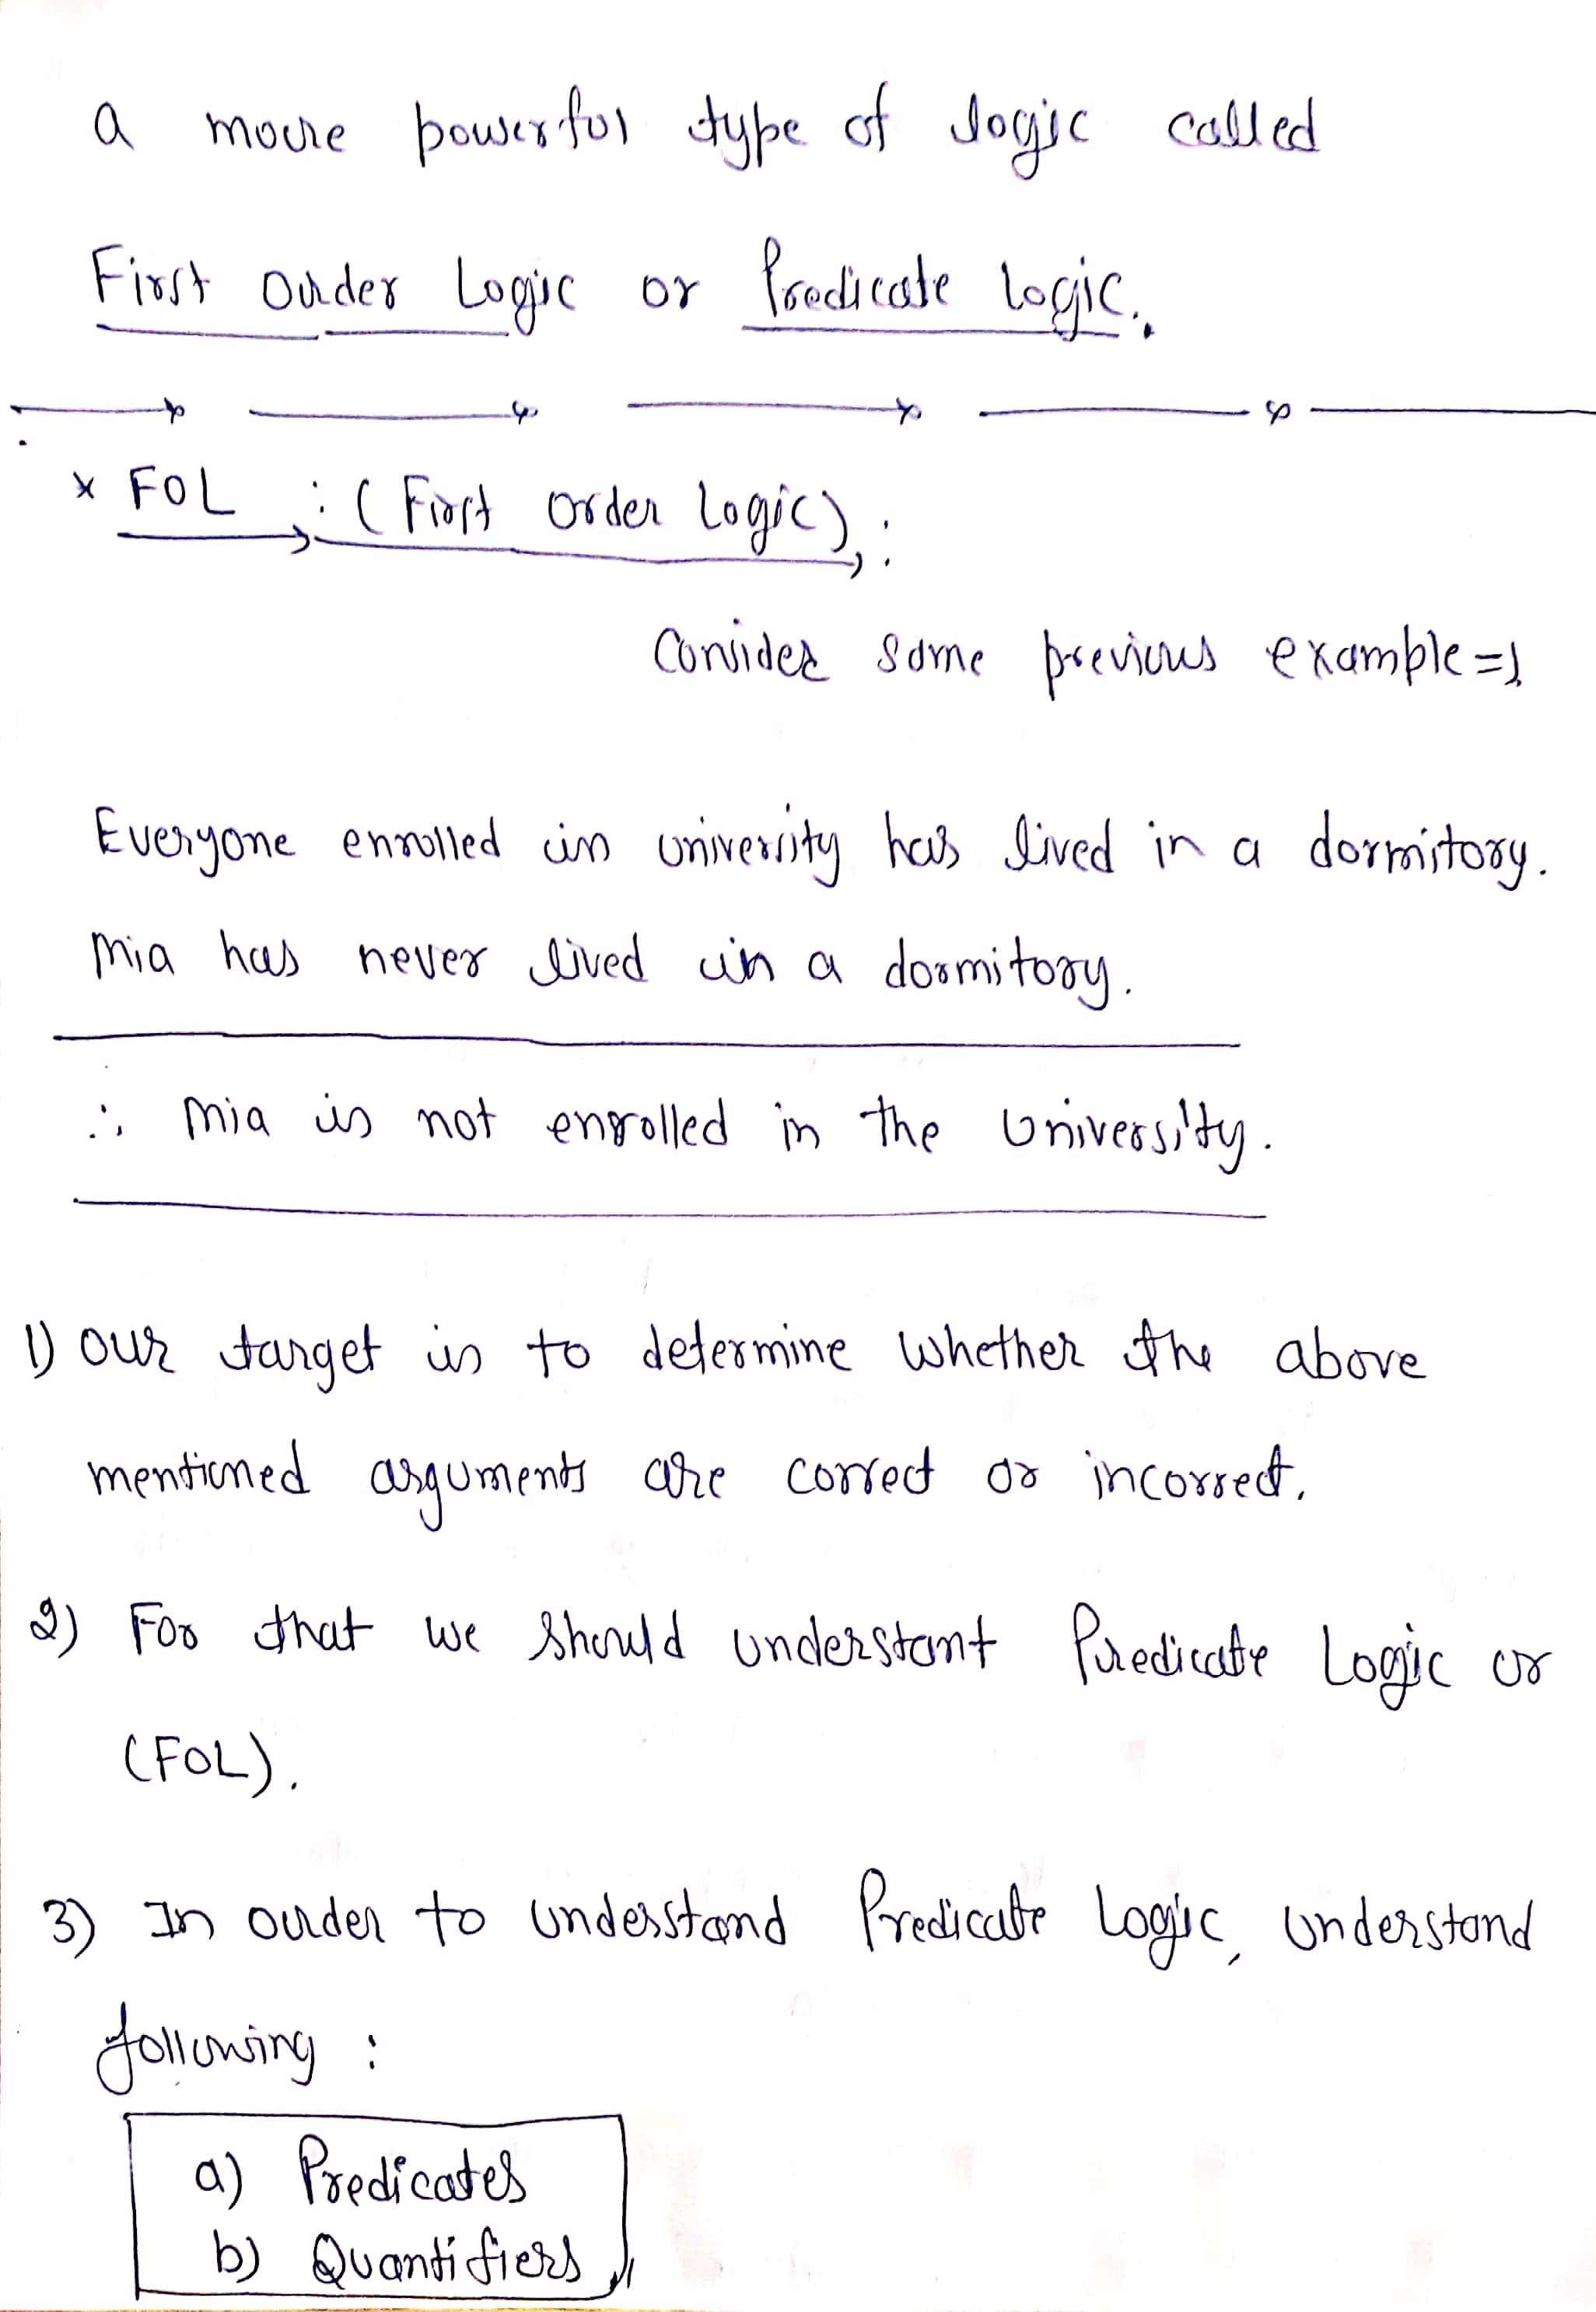 a more powerful type of logic called
First Order Logic or Predicate Logic.
* FOL : (First Order Logic) :
Consider some previous example =>
Everyone enrolled in university has lived in a dormitory.
Mia has never lived in a dormitory.
∴ Mia is not enrolled in the University.
1) Our target is to determine whether the above
mentioned arguments are correct or incorrect.
2) For that we should understant Predicate Logic or
(FOL).
3) In order to understand Predicate Logic, understand
following :
a) Predicates
b) Quantifiers